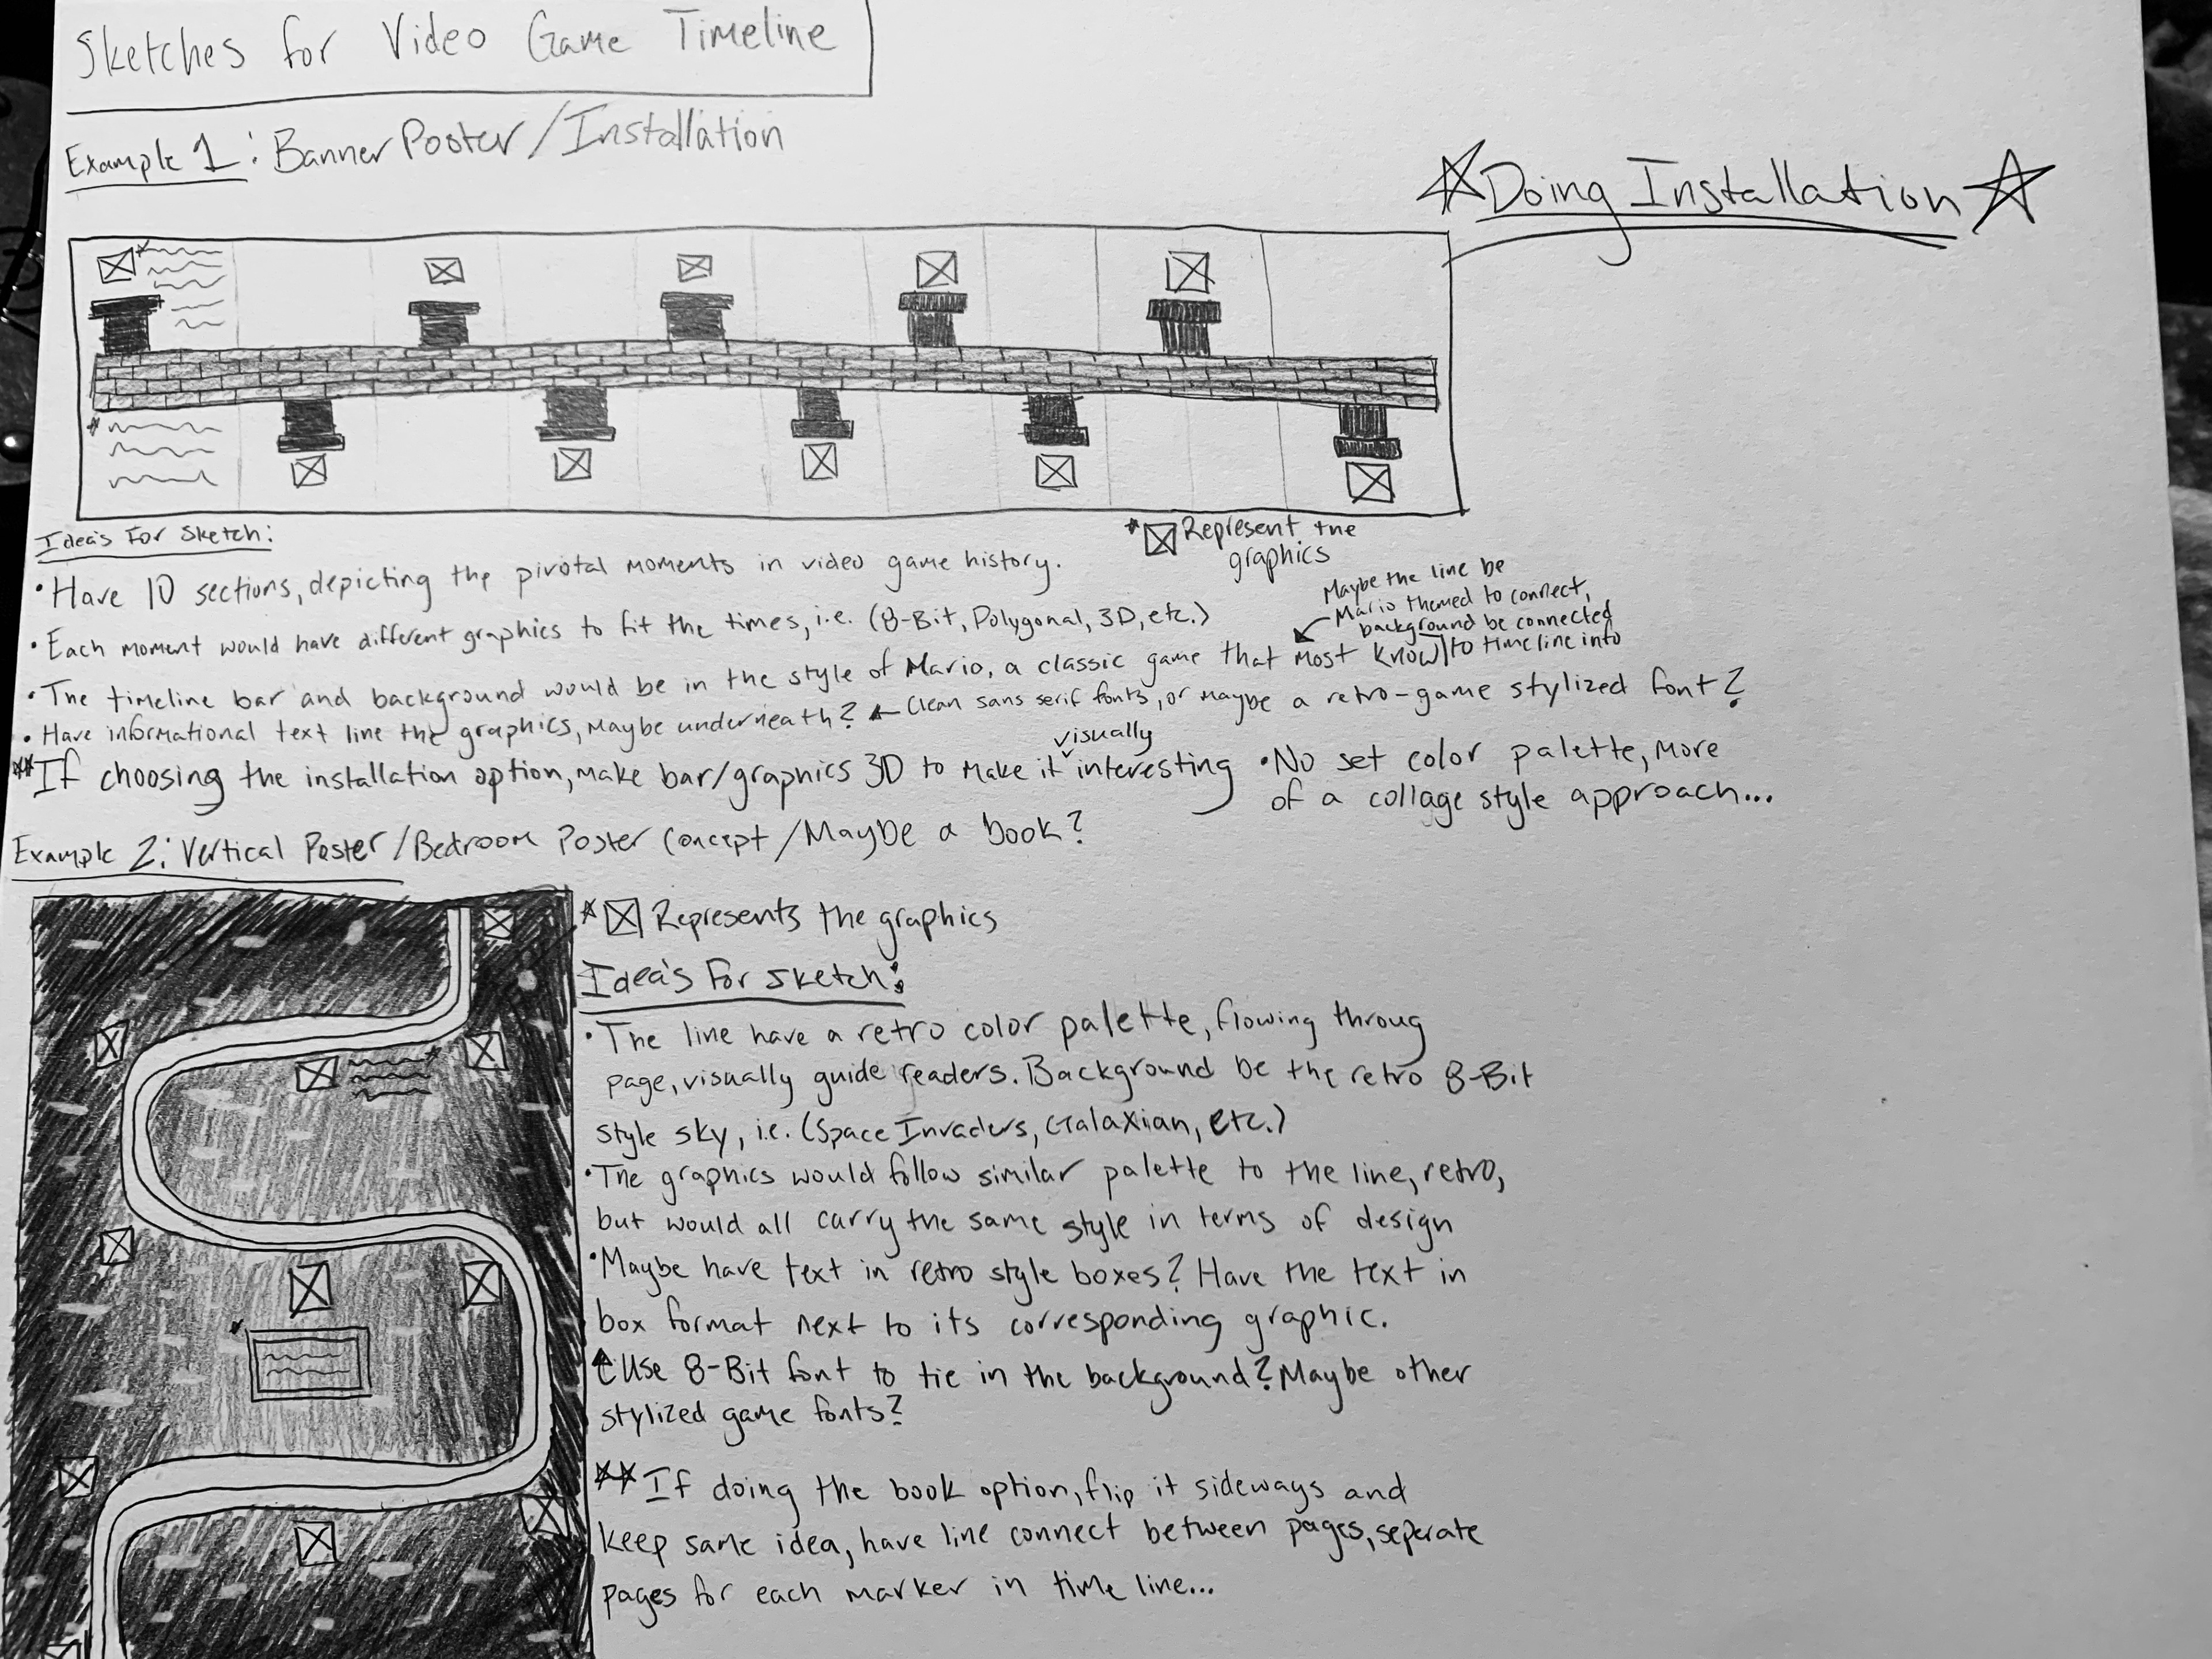 Sketches for Video Game Timeline
Example 1: Banner Poster/Installation
☆Doing Installation☆
*☒ Represent the
graphics
Ideas For Sketch:
•Have 10 sections, depicting the pivotal moments in video game history.
•Each moment would have different graphics to fit the times, i.e. (8-Bit, Polygonal, 3D, etc.)
Maybe the line be
Mario themed to connect,
background be connected
to timeline info
•The timeline bar and background would be in the style of Mario, a classic game that most know
•Have informational text line the graphics, maybe underneath? ← Clean sans serif fonts, or maybe a retro-game stylized font?
**If choosing the installation option, make bar/graphics 3D to make it visually interesting
•No set color palette, more
of a collage style approach...
Example 2: Vertical Poster/Bedroom Poster Concept/Maybe a book?
*☒ Represents the graphics
Idea's For Sketch:
•The line have a retro color palette, flowing throug
page, visually guide readers. Background be the retro 8-Bit
style sky, i.e. (Space Invaders, Galaxian, etc.)
•The graphics would follow similar palette to the line, retro,
but would all carry the same style in terms of design
•Maybe have text in retro style boxes? Have the text in
box format next to its corresponding graphic.
↑Use 8-Bit font to tie in the background? Maybe other
stylized game fonts?
**If doing the book option, flip it sideways and
keep same idea, have line connect between pages, seperate
pages for each marker in time line...